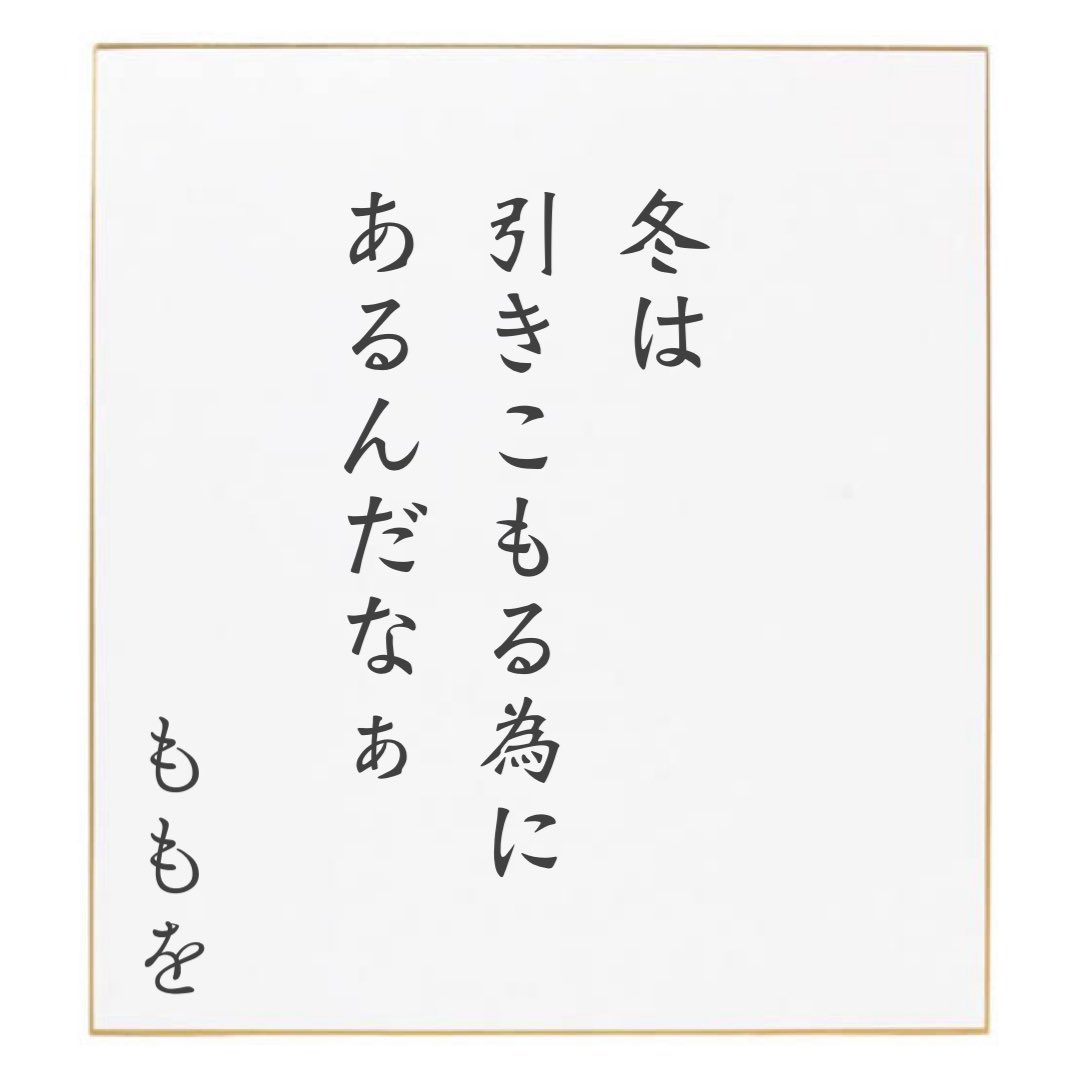 冬は
引きこもる為に
あるんだなぁ
ももを